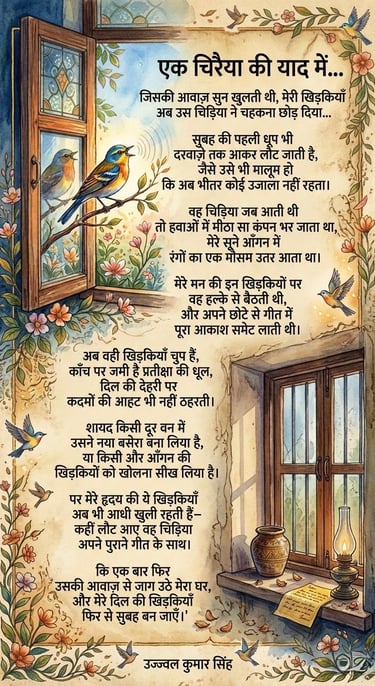 एक चिरैया की याद में...
जिसकी आवाज़ सुन खुलती थी, मेरी खिड़कियाँ
अब उस चिड़िया ने चहकना छोड़ दिया...
सुबह की पहली धूप भी
दरवाज़े तक आकर लौट जाती है,
जैसे उसे भी मालूम हो
कि अब भीतर कोई उजाला नहीं रहता।
वह चिड़िया जब आती थी
तो हवाओं में मीठा सा कंपन भर जाता था,
मेरे सूने आँगन में
रंगों का एक मौसम उतर आता था।
मेरे मन की इन खिड़कियों पर
वह हल्के से बैठती थी,
और अपने छोटे से गीत में
पूरा आकाश समेट लाती थी।
अब वही खिड़कियाँ चुप हैं,
काँच पर जमी है प्रतीक्षा की धूल,
दिल की देहरी पर
कदमों की आहट भी नहीं ठहरती।
शायद किसी दूर वन में
उसने नया बसेरा बना लिया है,
या किसी और आँगन की
खिड़कियों को खोलना सीख लिया है।
पर मेरे हृदय की ये खिड़कियाँ
अब भी आधी खुली रहती हैं–
कहीं लौट आए वह चिड़िया
अपने पुराने गीत के साथ।
कि एक बार फिर
उसकी आवाज़ से जाग उठे मेरा घर,
और मेरे दिल की खिड़कियाँ
फिर से सुबह बन जाएँ।'
उज्ज्वल कुमार सिंह